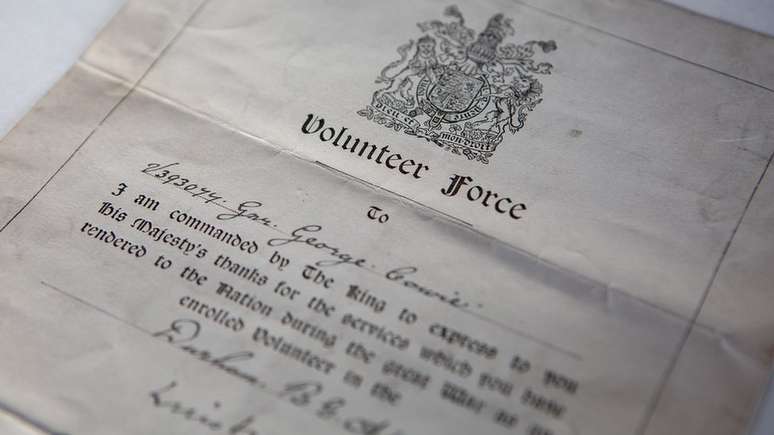 DIEU ET MON DROIT
Volunteer Force
To
V393077. Gnr. George Cowie.
I am commanded by The King to express to you
His Majesty's thanks for the services which you have
rendered to the Nation during the great War as an
enrolled Volunteer in the
Durham